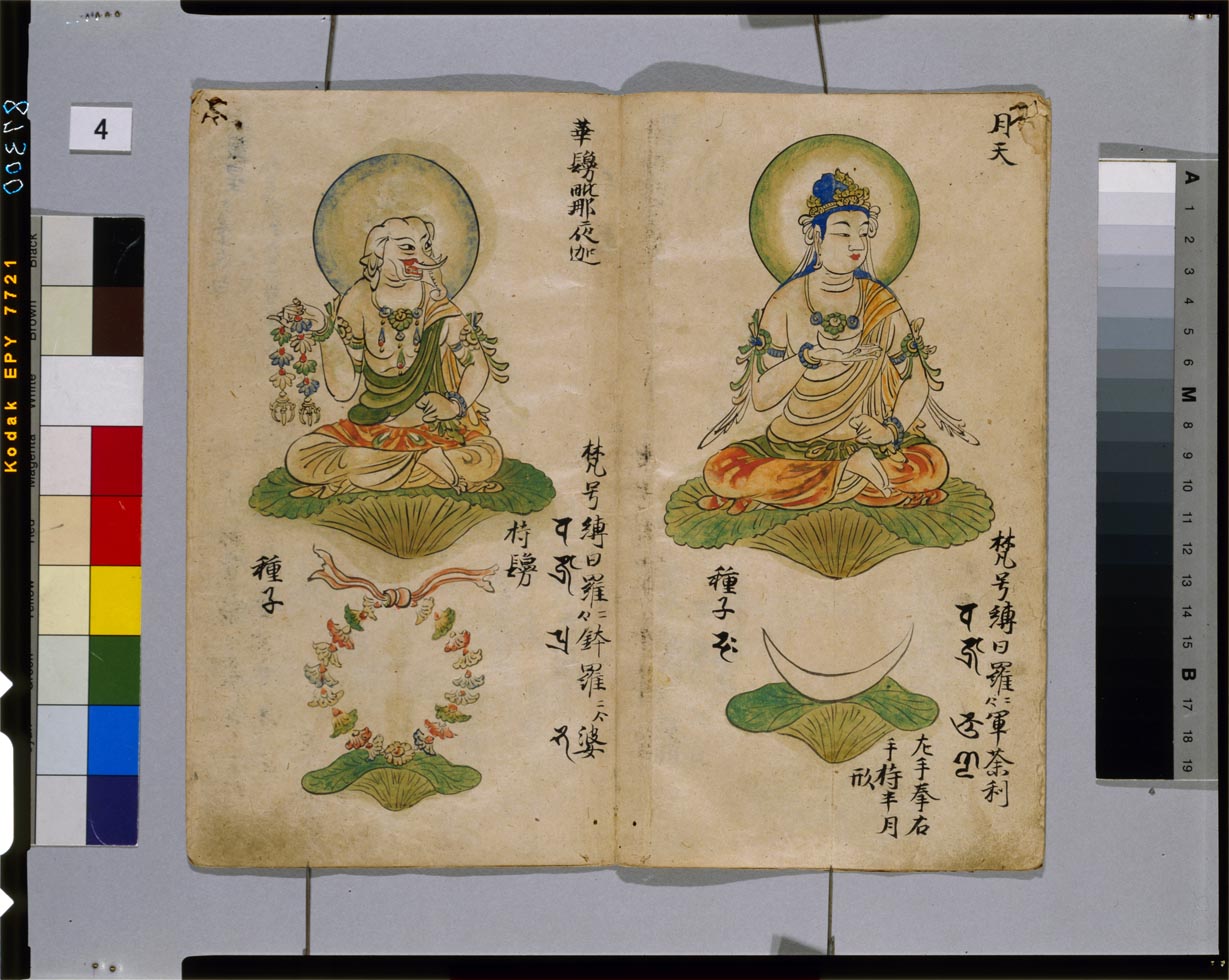 月天
梵号縛日羅二合軍荼利
種子
左手拳右
手持半月
形
華鬘毗那夜迦
梵号縛日羅二合鉢羅二合婆
持鬘
種子
4
87300
Kodak EPY 7721
Black
Brown
White
Magenta
Red
Yellow
Green
A
1
2
3
4
5
6
M
8
9
10
11
12
13
14
15
B
17
18
19